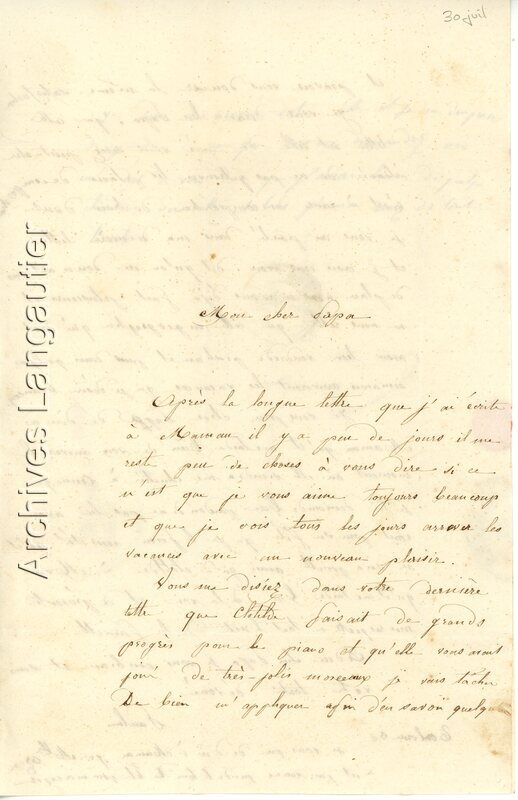 30 juil
Mon cher Papa
Après la longue lettre que j'ai écrite
à Maman il y a peu de jours il me
reste peu de choses à vous dire si ce
n'est que je vous aime toujours beaucoup
et que je vois tous les jours arriver les
vacances avec un nouveau plaisir.
Vous me disiez dans votre dernière
lettre que Clotilde faisait de grands
progrès pour le piano et qu'elle vous avait
joué de très-jolis morceaux je vais tâcher
De bien m'appliquer afin d'en savoir quelqu
Archives Langautier